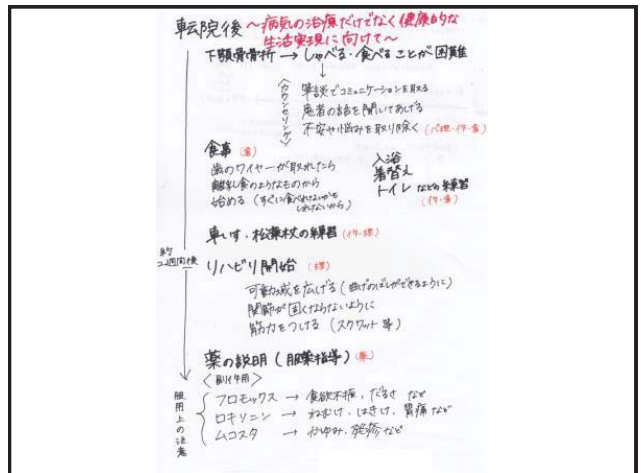 転院後 ～病気の治療だけでなく健康的な
生活実現に向けて～
下顎骨骨折 → しゃべる・食べることが困難
↓
〈カウンセリング〉
筆談でコミュニケーションを取る
患者の話を聞いてあげる
不安や悩みを取り除く (心理・作・看)
食事 (看)
歯のワイヤーが取れたら
離乳食のようなものから
始める (すぐに食べれないかも
しれないから)
入浴
着替え
トイレ などの練習
(作・看)
車いす・松葉杖の練習 (作・理)
約
2週間後
リハビリ開始 (理)
可動域を広げる (曲げのばしができるように)
関節が固くならないように
筋力をつける (スクワット等)
薬の説明 (服薬指導) (薬)
〈副作用〉
服用上の注意
フロモックス → 食欲不振、だるさ など
ロキソニン → ねむけ、はきけ、胃痛 など
ムコスタ → かゆみ、発疹など